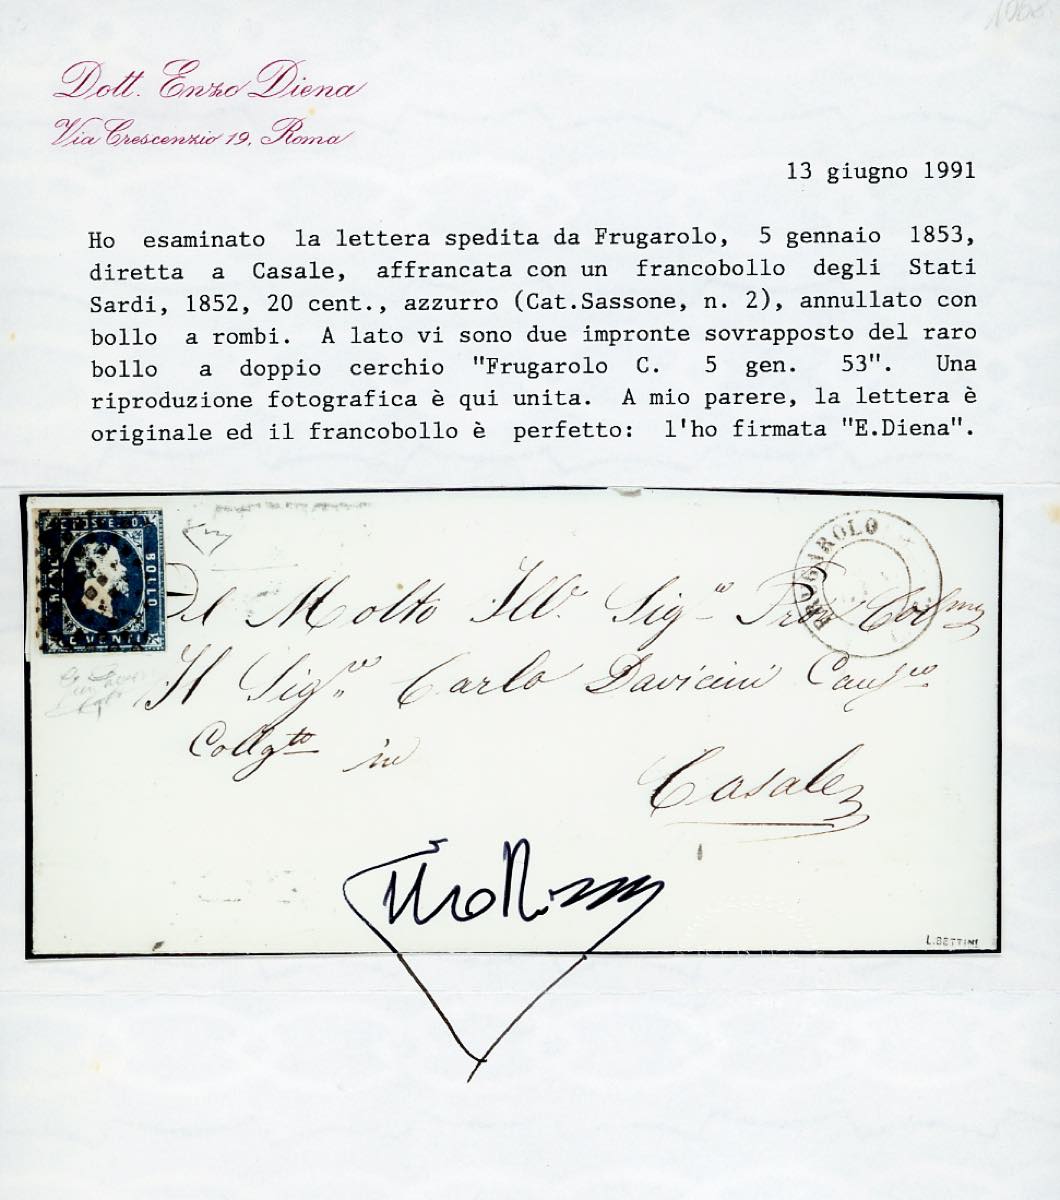 Dott. Enzo Diena
Via Crescenzio 19, Roma
13 giugno 1991
Ho esaminato la lettera spedita da Frugarolo, 5 gennaio 1853,
diretta a Casale, affrancata con un francobollo degli Stati
Sardi, 1852, 20 cent., azzurro (Cat.Sassone, n. 2), annullato con
bollo a rombi. A lato vi sono due impronte sovrapposto del raro
bollo a doppio cerchio "Frugarolo C. 5 gen. 53". Una
riproduzione fotografica è qui unita. A mio parere, la lettera è
originale ed il francobollo è perfetto: l'ho firmata "E.Diena".
BOLLO
FRUGAROLO
Al Molto Ill. Sig.
Il Sig. Carlo Davicini
in
Casale
L.BETTINI